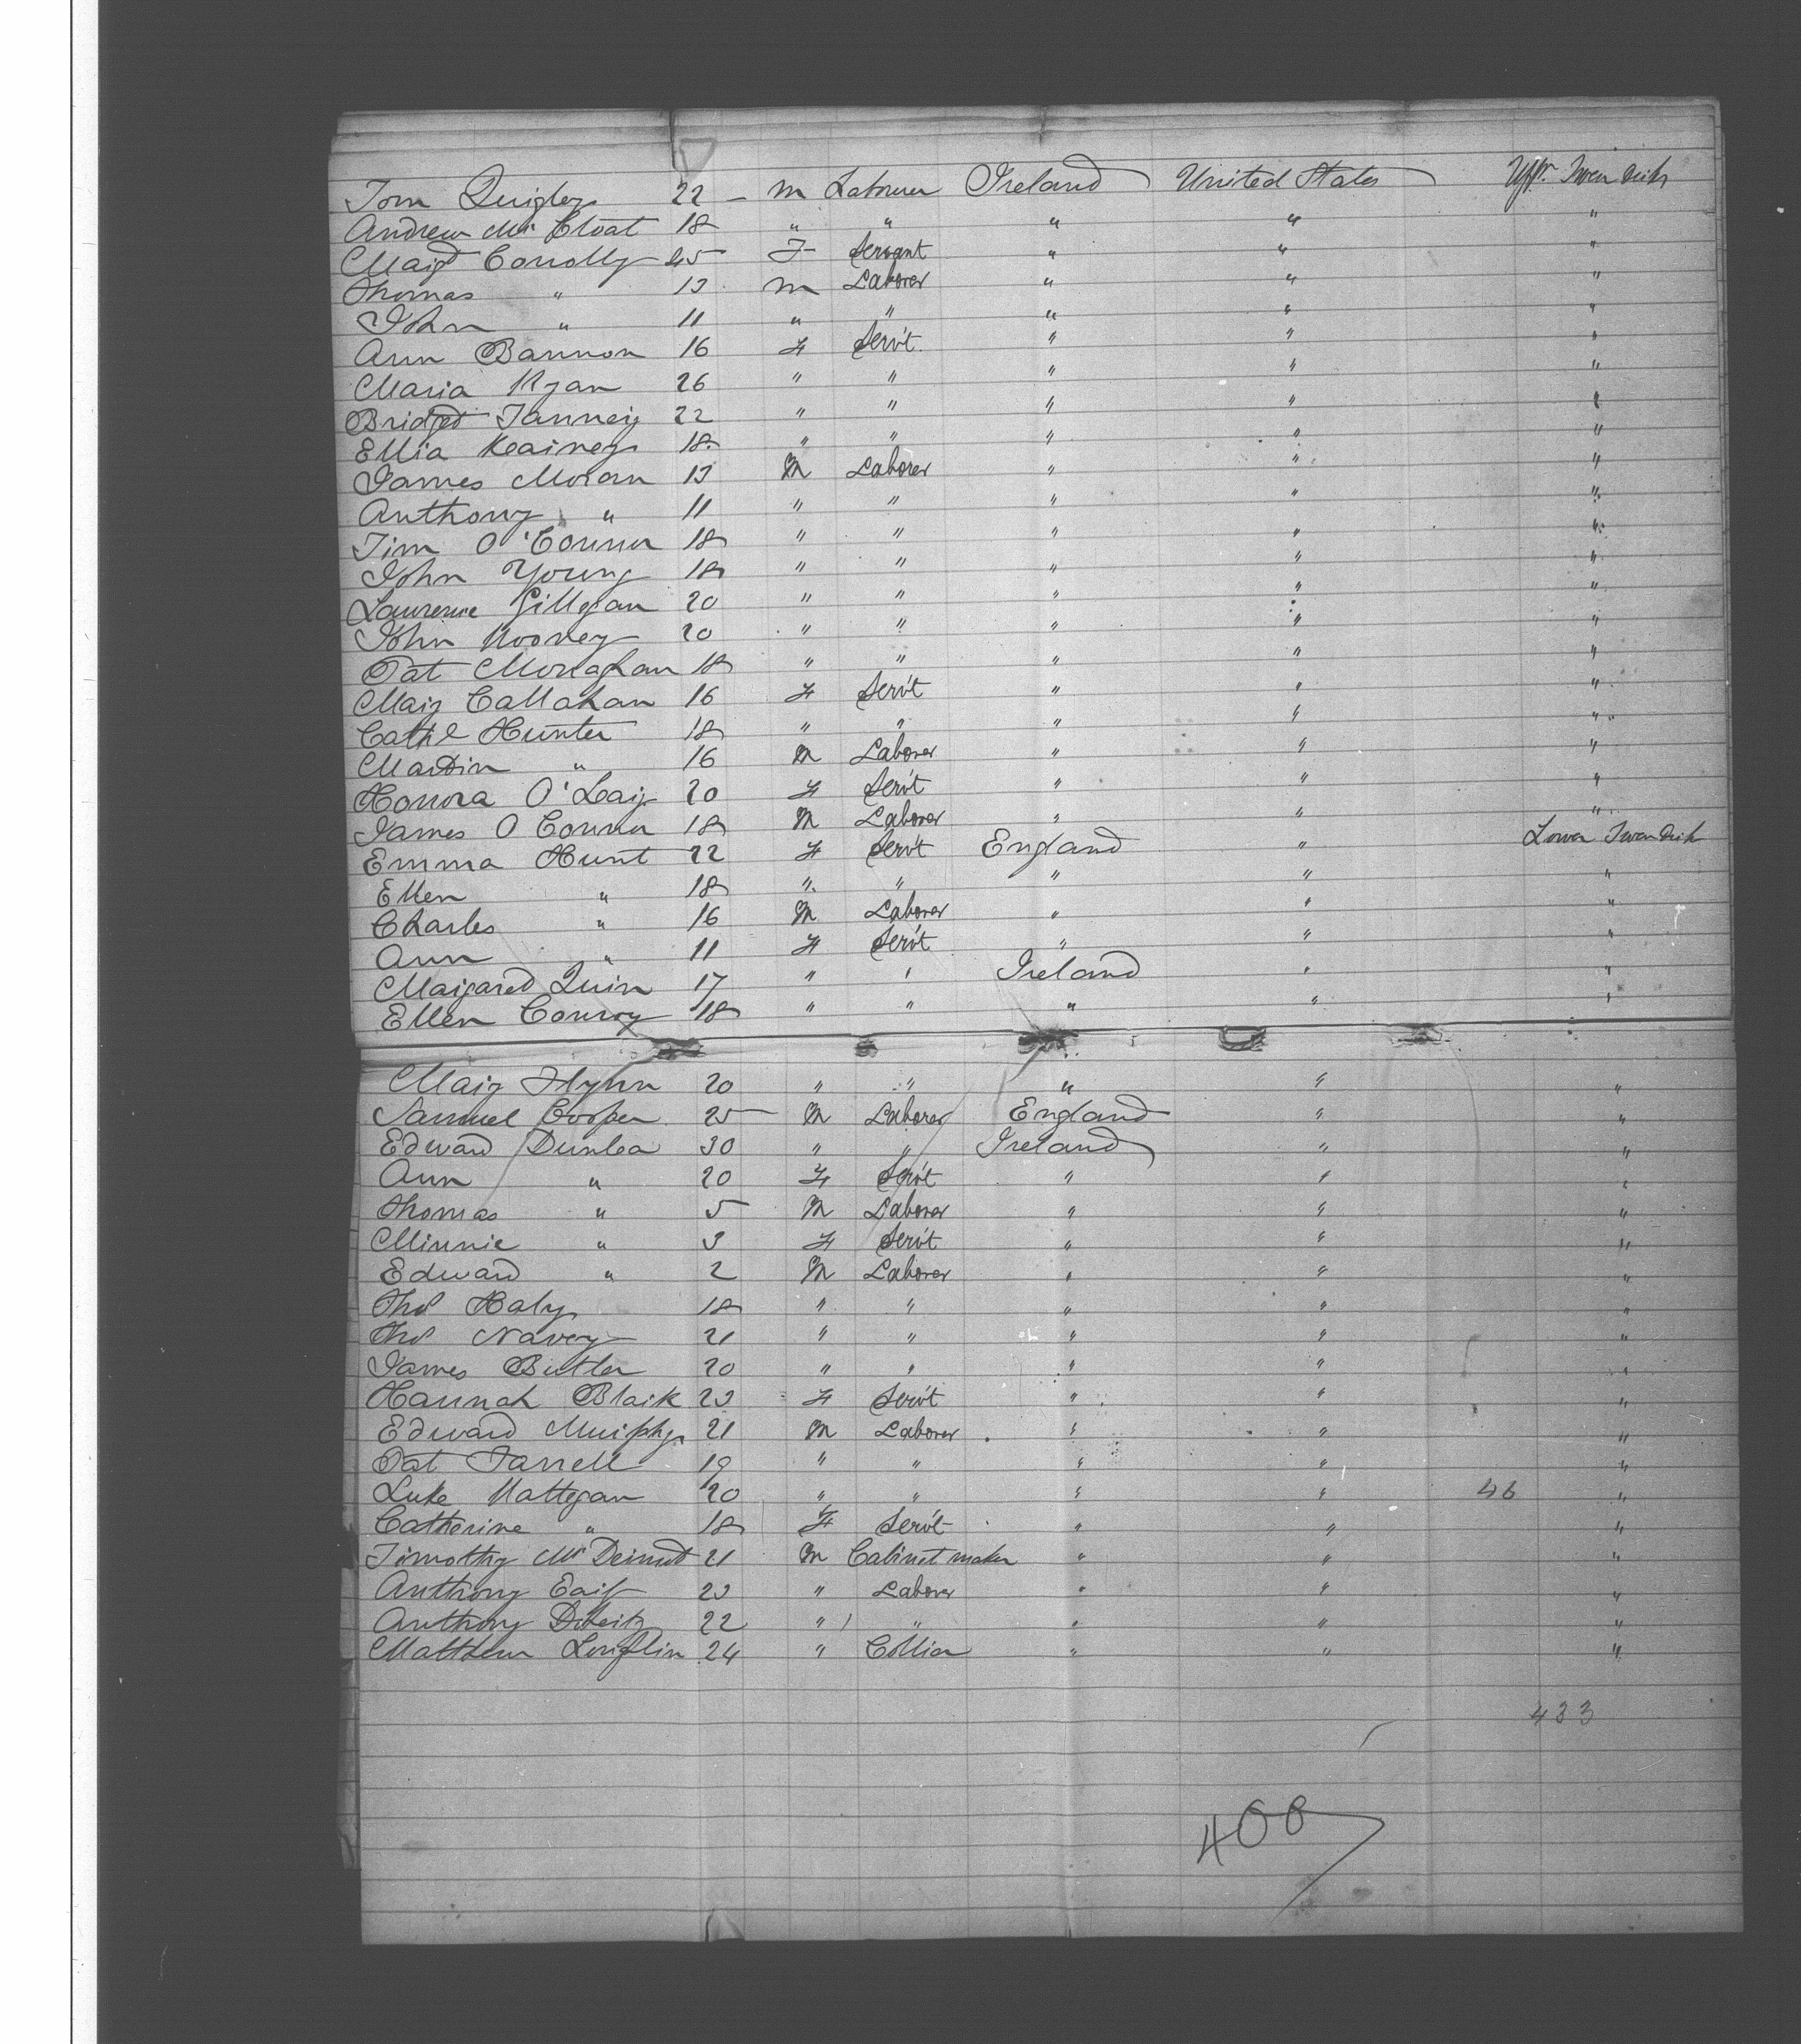 Tom Quigley 22 – m Labourer Ireland United States Uppr. Tween Decks
Andrew Mc Cloat 18 " " " " "
Margt Conolly 45 F Servant " " "
Thomas " 13 m Laborer " " "
John " 11 " " " " "
Ann Bannon 16 F Servt. " " "
Maria Ryan 26 " " " " "
Bridget 22 " " " " "
Ellia Kearney 18 " " " " "
James Moran 13 M Laborer " " "
Anthony " 11 " " " " "
Tim O'Connor 18 " " " " "
John Young 18 " " " " "
Lawrence Gillgan 20 " " " " "
John Mooney 20 " " " " "
Pat Monaghan 18 " " " " "
Mary Callahan 16 F Servt " " "
Cathe Hunter 18 " " " " "
Martin " 16 M Laborer " " "
Honora 20 F Servt " " "
James O Connor 18 M Laborer " " "
Emma Hunt 22 F Servt England " Lower Tween Deck
Ellen " 18 " " " " "
Charles " 16 M Laborer " " "
Ann " 11 F Servt " " "
Margared Quin 17 " " Ireland " "
Ellen Conroy 18 " " " " "
Mary Flynn 20 " " " " "
Samuel Cooper 25 M Laborer England " "
Edward Dunlea 30 " " Ireland " "
Ann " 20 F Servt " " "
Thomas " 5 M Laborer " " "
Minnie " 3 F Servt " " "
Edward " 2 M Laborer " " "
Thos Haly 18 " " " " "
Thos Navey 21 " " " " "
James Butler 20 " " " " "
Hannah Blark 23 F Servt " " "
Edward Murphy 21 M Laborer " " "
Pat Farrell 19 " " " " "
Luke Hattegan 20 " " " " 46 "
Catherine " 18 F Servt " " "
Timothy Mc Dermot 21 M Cabinet maker " " "
Anthony 23 " Laborer " " "
Anthony 22 " " " " "
Matthew Loughlin 24 " Collier " " "
433
408